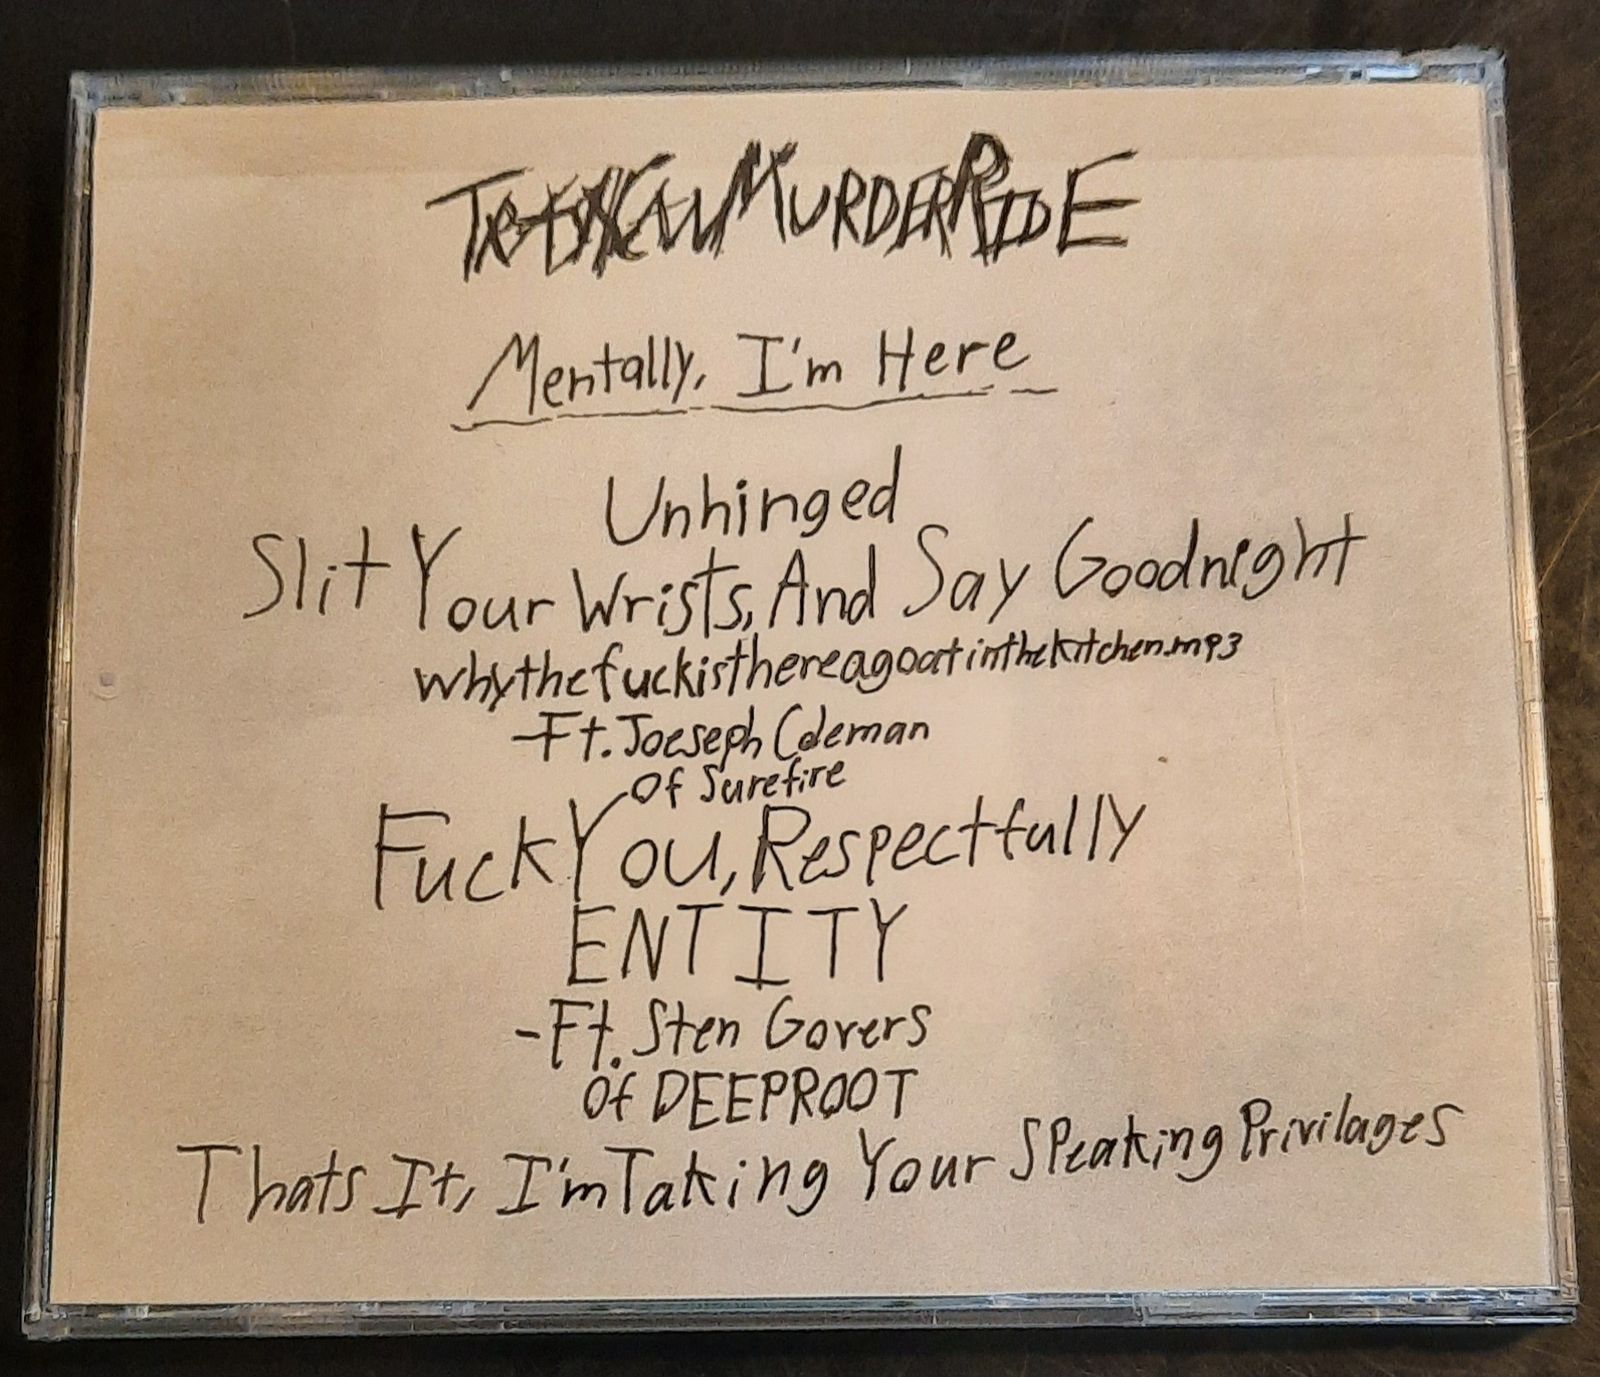 MURDERRIDE
Mentally, I'm Here
Unhinged
Slit Your Wrists, And Say Goodnight
whythefuckisthereagoatinthekitchen.mp3
-Ft. Joeseph Coleman
Of Surefire
Fuck You, Respectfully
ENTITY
-Ft. Sten Govers
Of DEEPROOT
Thats It, I'm Taking Your Speaking Privilages